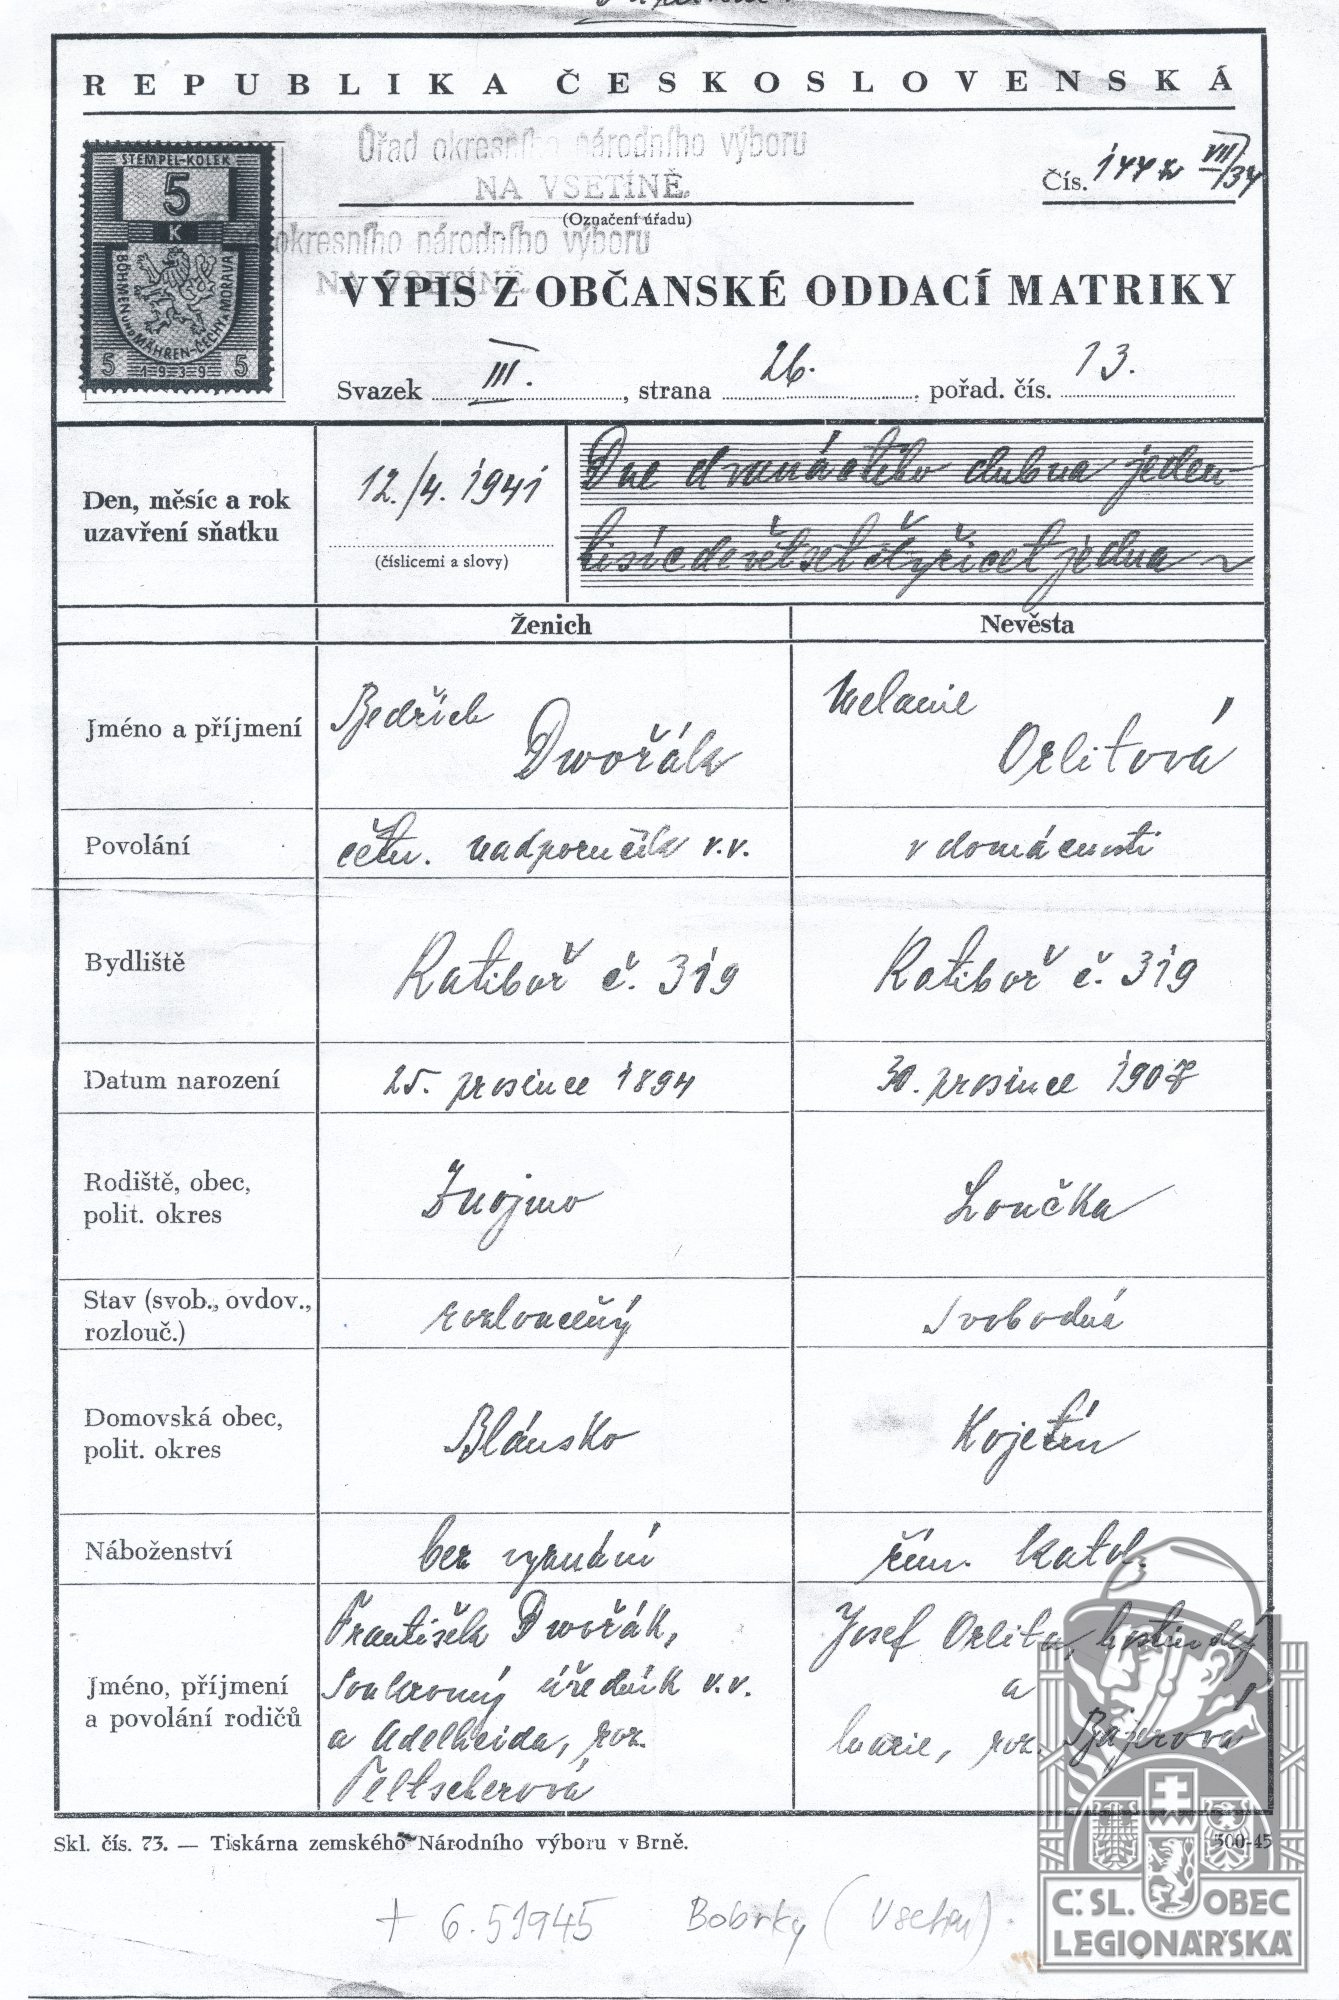 REPUBLIKA ČESKOSLOVENSKÁ
Úřad okresního národního výboru
NA VSETÍNĚ.
(Označení úřadu)
Čís. 144 VII/34
STEMPEL-KOLEK
5
K
BÖHMEN UND MÄHREN-ČECHY A MORAVA
5 1939 5
okresního národního výboru
NA VSETÍNĚ.
VÝPIS Z OBČANSKÉ ODDACÍ MATRIKY
Svazek III. , strana 26. , pořad. čís. 13.
Den, měsíc a rok
uzavření sňatku
12./4. 1941
(číslicemi a slovy)
Dne dvanáctého dubna jeden
tisícdevětsetčtyřicetjedna
Ženich Nevěsta
Jméno a příjmení
Bedřich
Dvořák
Melanie
Orlitová
Povolání četn. nadporučík v.v. v domácnosti
Bydliště Ratiboř č. 319 Ratiboř č. 319
Datum narození 25. prosince 1894 30. prosince 1907
Rodiště, obec,
polit. okres
Znojmo Loučka
Stav (svob., ovdov.,
rozlouč.)
rozloučený svobodná
Domovská obec,
polit. okres
Blansko Kojetín
Náboženství bez vyznání řím. katol.
Jméno, příjmení
a povolání rodičů
František Dvořák,
soukromý úředník v.v.
a Adelheida, roz.
Feltscherová
Josef Orlita, hostinský
a
Marie, roz. Bajerová
Skl. čís. 73. — Tiskárna zemského Národního výboru v Brně.
500-45
+ 6.51945 Bobrky (Vsetín).
Č.SL. OBEC
LEGIONÁŘSKÁ